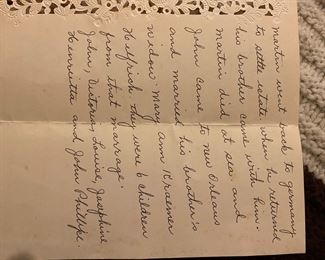 Martin went back to germany
to settle estate when he returned
his brother came with him.
Martin died at sea and
John came to new Orleans
and married his brother's
Widow Mary Ann Kraemer
Helfrich they were 6 children
from that marrage.
John, Victoria, Louise, Josephine
Henrietta and John Phillip.